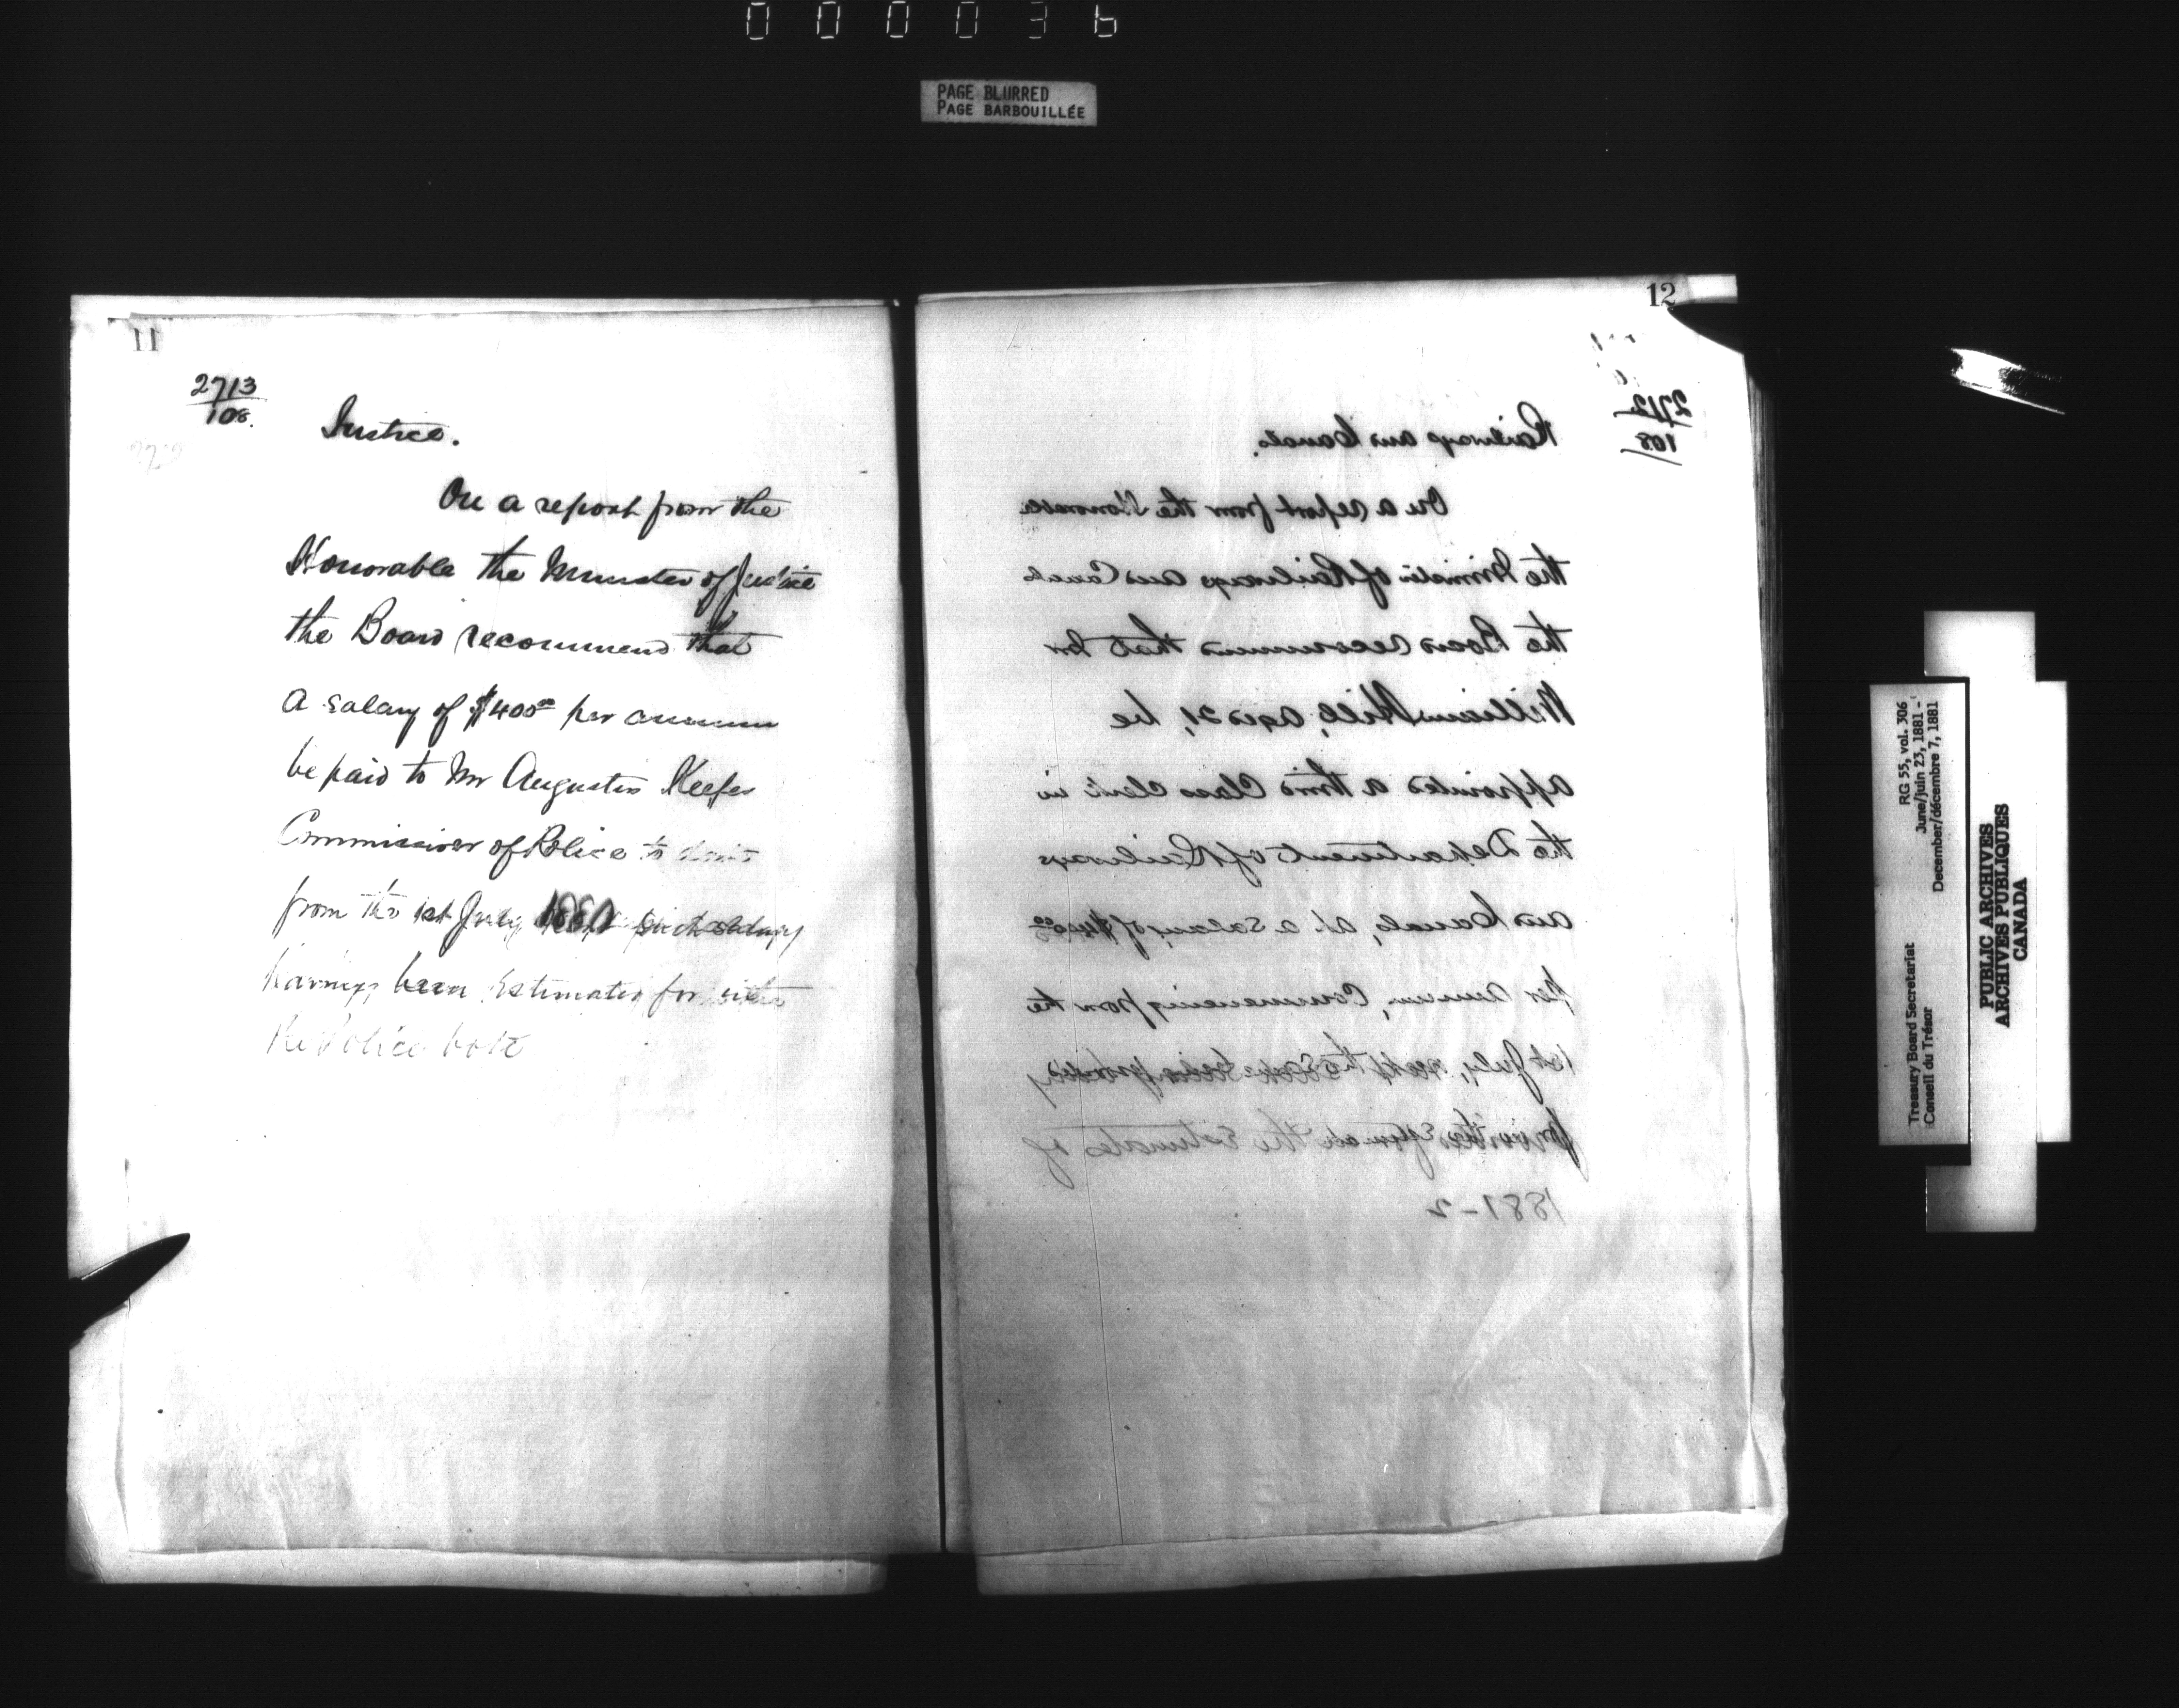 000036
PAGE BLURRED
PAGE BARBOUILLÉE
11
2713
108.
Justice.
On a report from the
Honorable the Minister of Justice
the Board recommend that
a salary of $400⁰⁰ per annum
be paid to Mr Augustus Keefer
Commissioner of Police to date
from the 1st July such salary
having been Estimated for
the Police vote
12
2712
108
Railways and Canals.
On a report from the Honorable
the Minister of Railways and Canals
the Board recommend that Mr
William Hill, aged 21, be
appointed a third Class Clerk in
the Department of Railways
and Canals, at a salary of $400⁰⁰
per annum, Commencing from the
1st July, the
for in the Estimates of
1881-2
RG 55, vol. 306
June/juin 23, 1881 -
December/décembre 7, 1881
Treasury Board Secretariat
Conseil du Trésor
PUBLIC ARCHIVES
ARCHIVES PUBLIQUES
CANADA